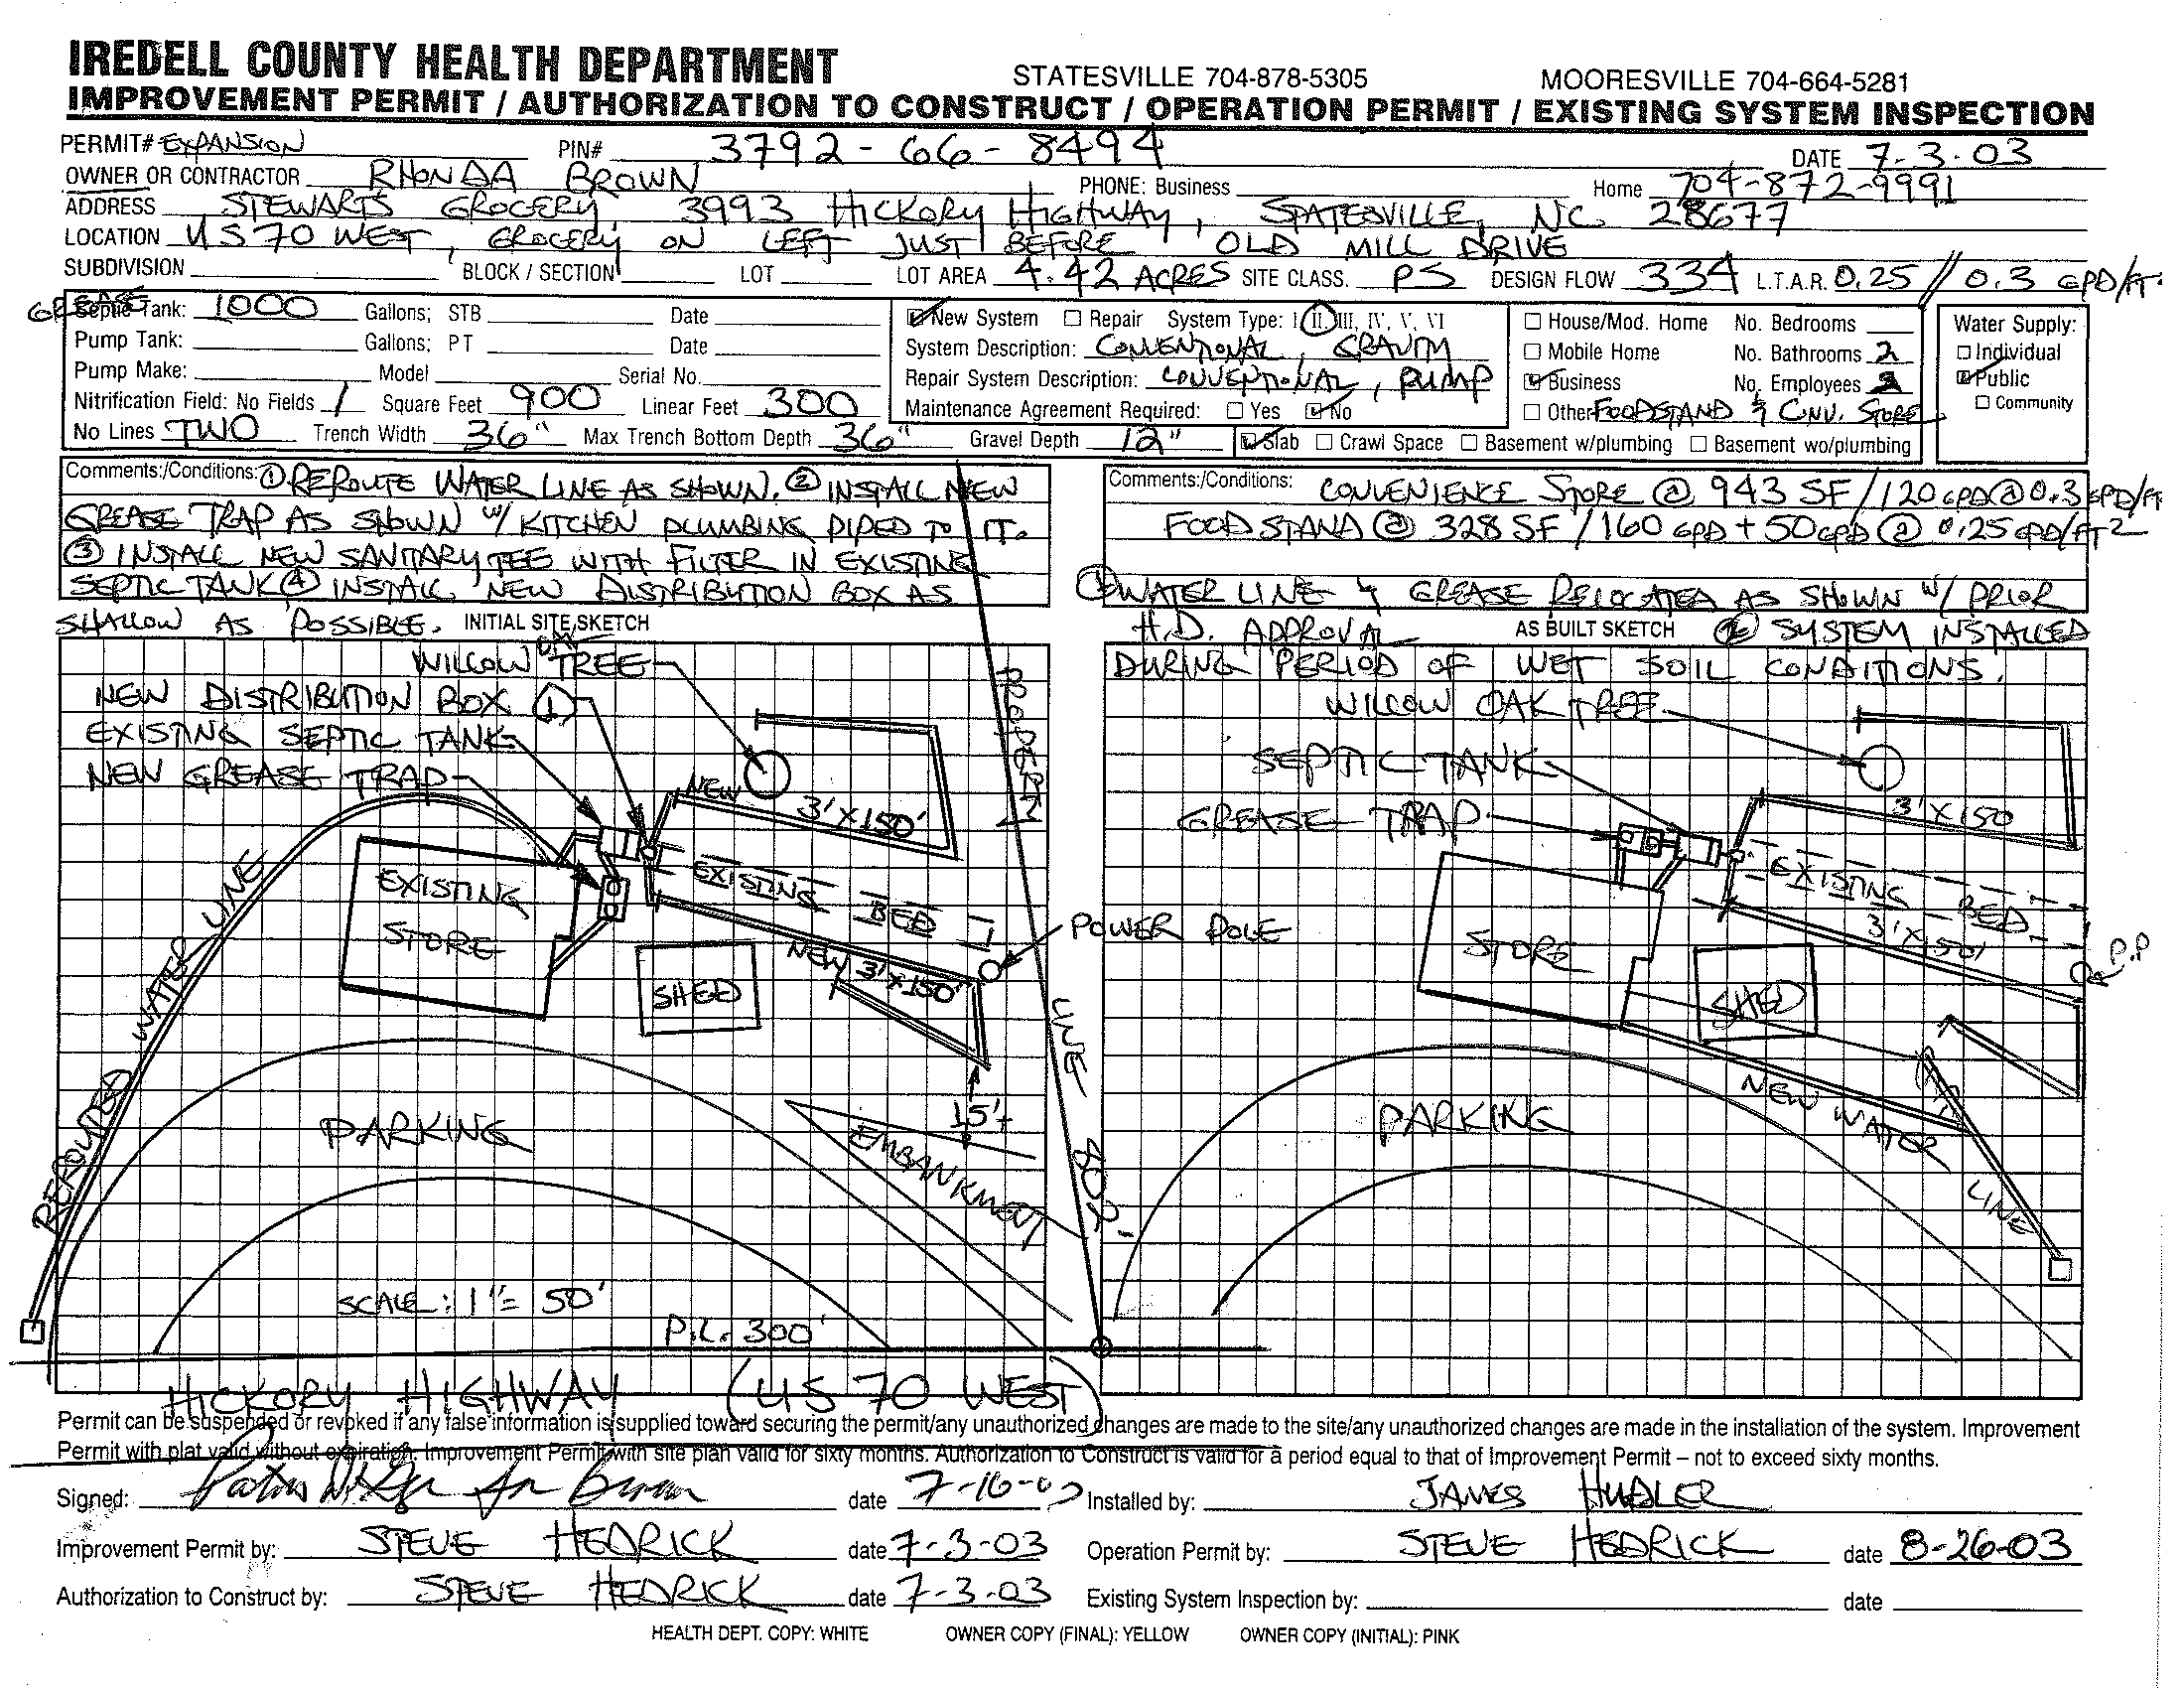 IREDELL COUNTY HEALTH DEPARTMENT STATESVILLE 704-878-5305 MOORESVILLE 704-664-5281
IMPROVEMENT PERMIT / AUTHORIZATION TO CONSTRUCT / OPERATION PERMIT / EXISTING SYSTEM INSPECTION
PERMIT# EXPANSION PIN# 3792-66-8494 DATE 7-3-03
OWNER OR CONTRACTOR RHONDA BROWN PHONE: Business Home 704-872-9991
ADDRESS STEWARTS GROCERY, 3993 HICKORY HIGHWAY, STATESVILLE, NC 28677
LOCATION US 70 WEST, GROCERY ON LEFT JUST BEFORE OLD MILL DRIVE
SUBDIVISION BLOCK / SECTION LOT LOT AREA 4.42 ACRES SITE CLASS. PS DESIGN FLOW 334 L.T.A.R. 0.25 // 0.3 GPD/FT²
GREASE Septic Tank: 1000 Gallons; STB Date
Pump Tank: Gallons; PT Date
Pump Make: Model Serial No.
Nitrification Field: No Fields 1 Square Feet 900 Linear Feet 300
No Lines TWO Trench Width 36" Max Trench Bottom Depth 36" Gravel Depth 12"
New System Repair System Type: I, II, III, IV, V, VI
System Description: CONVENTIONAL, GRAVITY
Repair System Description: CONVENTIONAL, PUMP
Maintenance Agreement Required: Yes No
House/Mod. Home No. Bedrooms
Mobile Home No. Bathrooms 2
Business No. Employees 2
Other FOODSTAND & CONV. STORE
Slab Crawl Space Basement w/plumbing Basement wo/plumbing
Water Supply:
Individual
Public
Community
Comments:/Conditions: ① REROUTE WATER LINE AS SHOWN. ② INSTALL NEW
GREASE TRAP AS SHOWN w/ KITCHEN PLUMBING PIPED TO IT.
③ INSTALL NEW SANITARY TEE WITH FILTER IN EXISTING
SEPTIC TANK ④ INSTALL NEW DISTRIBUTION BOX AS
SHALLOW AS POSSIBLE. INITIAL SITE SKETCH
Comments:/Conditions: CONVENIENCE STORE @ 943 SF / 120 GPD @ 0.3 GPD/FT
FOOD STAND @ 328 SF / 160 GPD + 50 GPD @ 0.25 GPD/FT²
① WATER LINE & GREASE RELOCATED AS SHOWN w/ PRIOR
H.D. APPROVAL AS BUILT SKETCH ② SYSTEM INSTALLED
DURING PERIOD OF WET SOIL CONDITIONS.
WILLOW OAK TREE
NEW DISTRIBUTION BOX 1
EXISTING SEPTIC TANK
NEW GREASE TRAP
NEW
3' X 150'
PROPERTY
EXISTING BED
EXISTING STORE
NEW 3' X 150'
POWER POLE
SHED
REROUTED WATER LINE
LINE
PARKING
15'+
EMBANKMENT
SCALE: 1" = 50'
P.L. 300'
HICKORY HIGHWAY (US 70 WEST)
WILLOW OAK TREE
SEPTIC TANK
GREASE TRAP
3' X 150
EXISTING BED
3' X 150'
P.P
STORE
SHED
NEW WATER LINE
PARKING
Permit can be suspended or revoked if any false information is supplied toward securing the permit/any unauthorized changes are made to the site/any unauthorized changes are made in the installation of the system. Improvement
Permit with plat valid without expiration. Improvement Permit with site plan valid for sixty months. Authorization to Construct is valid for a period equal to that of Improvement Permit – not to exceed sixty months.
Signed: date 7-16-03 Installed by: JAMES HUDLER
Improvement Permit by: STEVE HEDRICK date 7-3-03 Operation Permit by: STEVE HEDRICK date 8-26-03
Authorization to Construct by: STEVE HEDRICK date 7-3-03 Existing System Inspection by: date
HEALTH DEPT. COPY: WHITE OWNER COPY (FINAL): YELLOW OWNER COPY (INITIAL): PINK